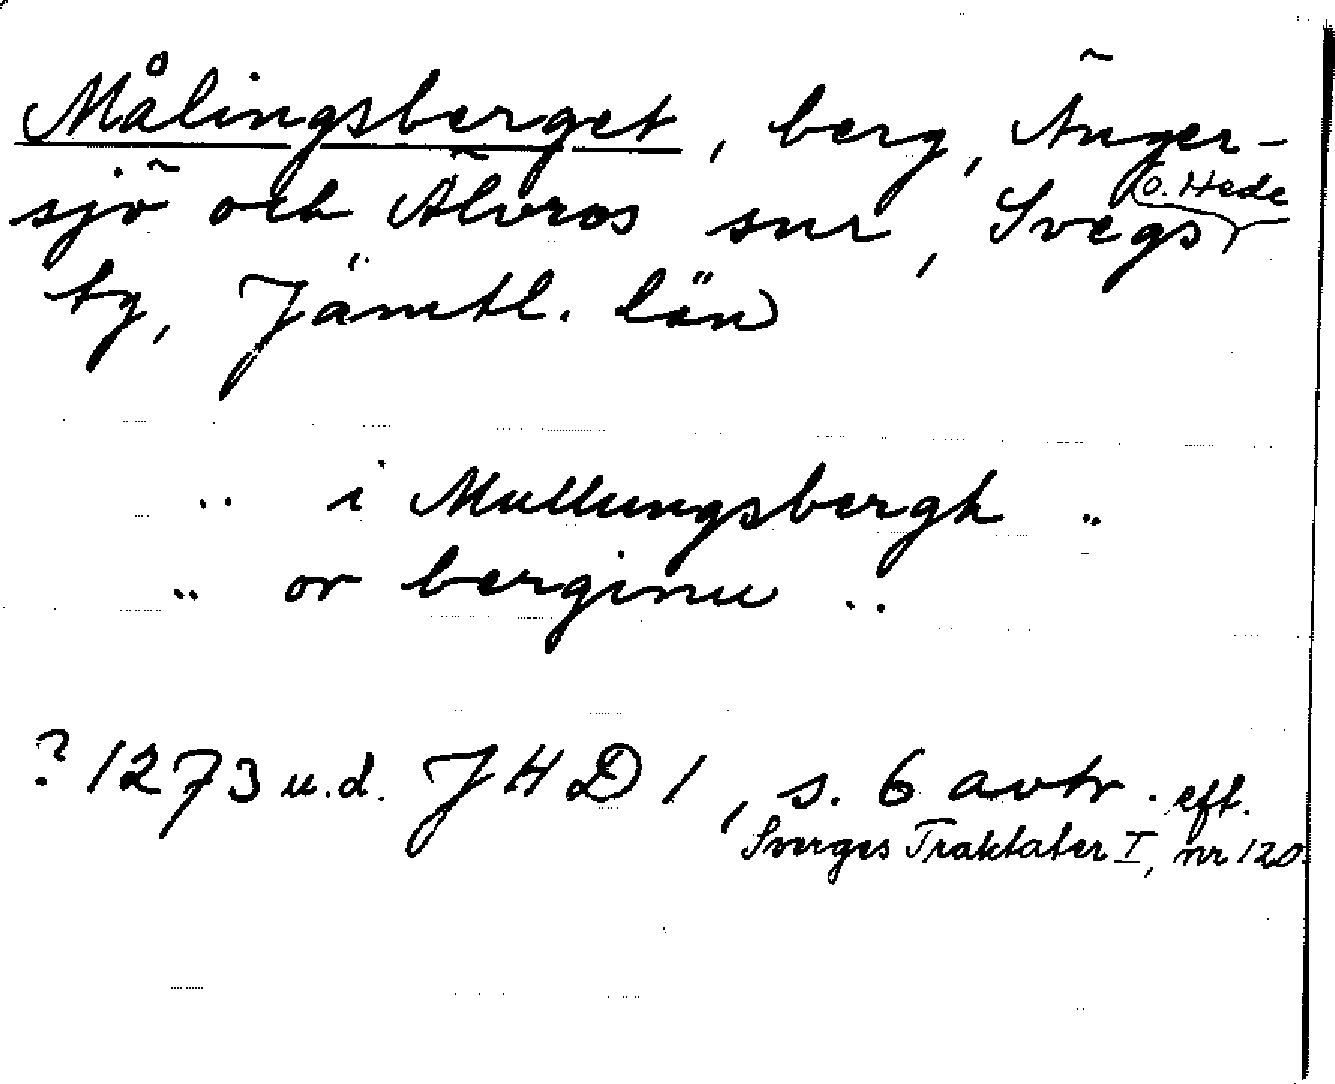 Målingsberget, berg, Änger-
sjö och Älvros snr, Svegs o. Hede
tg, Jämtl. län
.. i Mullungsbergh ..
.. or berginu ..
? 1273 u.d. JHD 1, s. 6 avtr. eft.
Sverges Traktater I, nr 120.